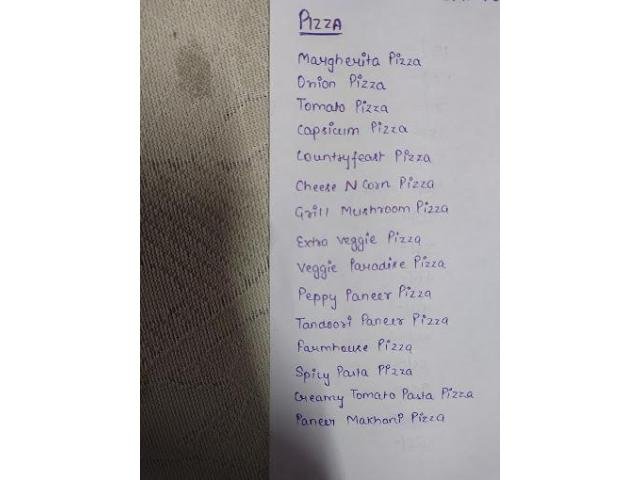 PIZZA
Margherita Pizza
Onion Pizza
Tomato Pizza
Capsicum Pizza
Countryfeast Pizza
Cheese N Corn Pizza
Grill Mushroom Pizza
Extra Veggie Pizza
Veggie Paradise Pizza
Peppy Paneer Pizza
Tandoori Paneer Pizza
Farmhouse Pizza
Spicy Pasta Pizza
Creamy Tomato Pasta Pizza
Paneer Makhani Pizza